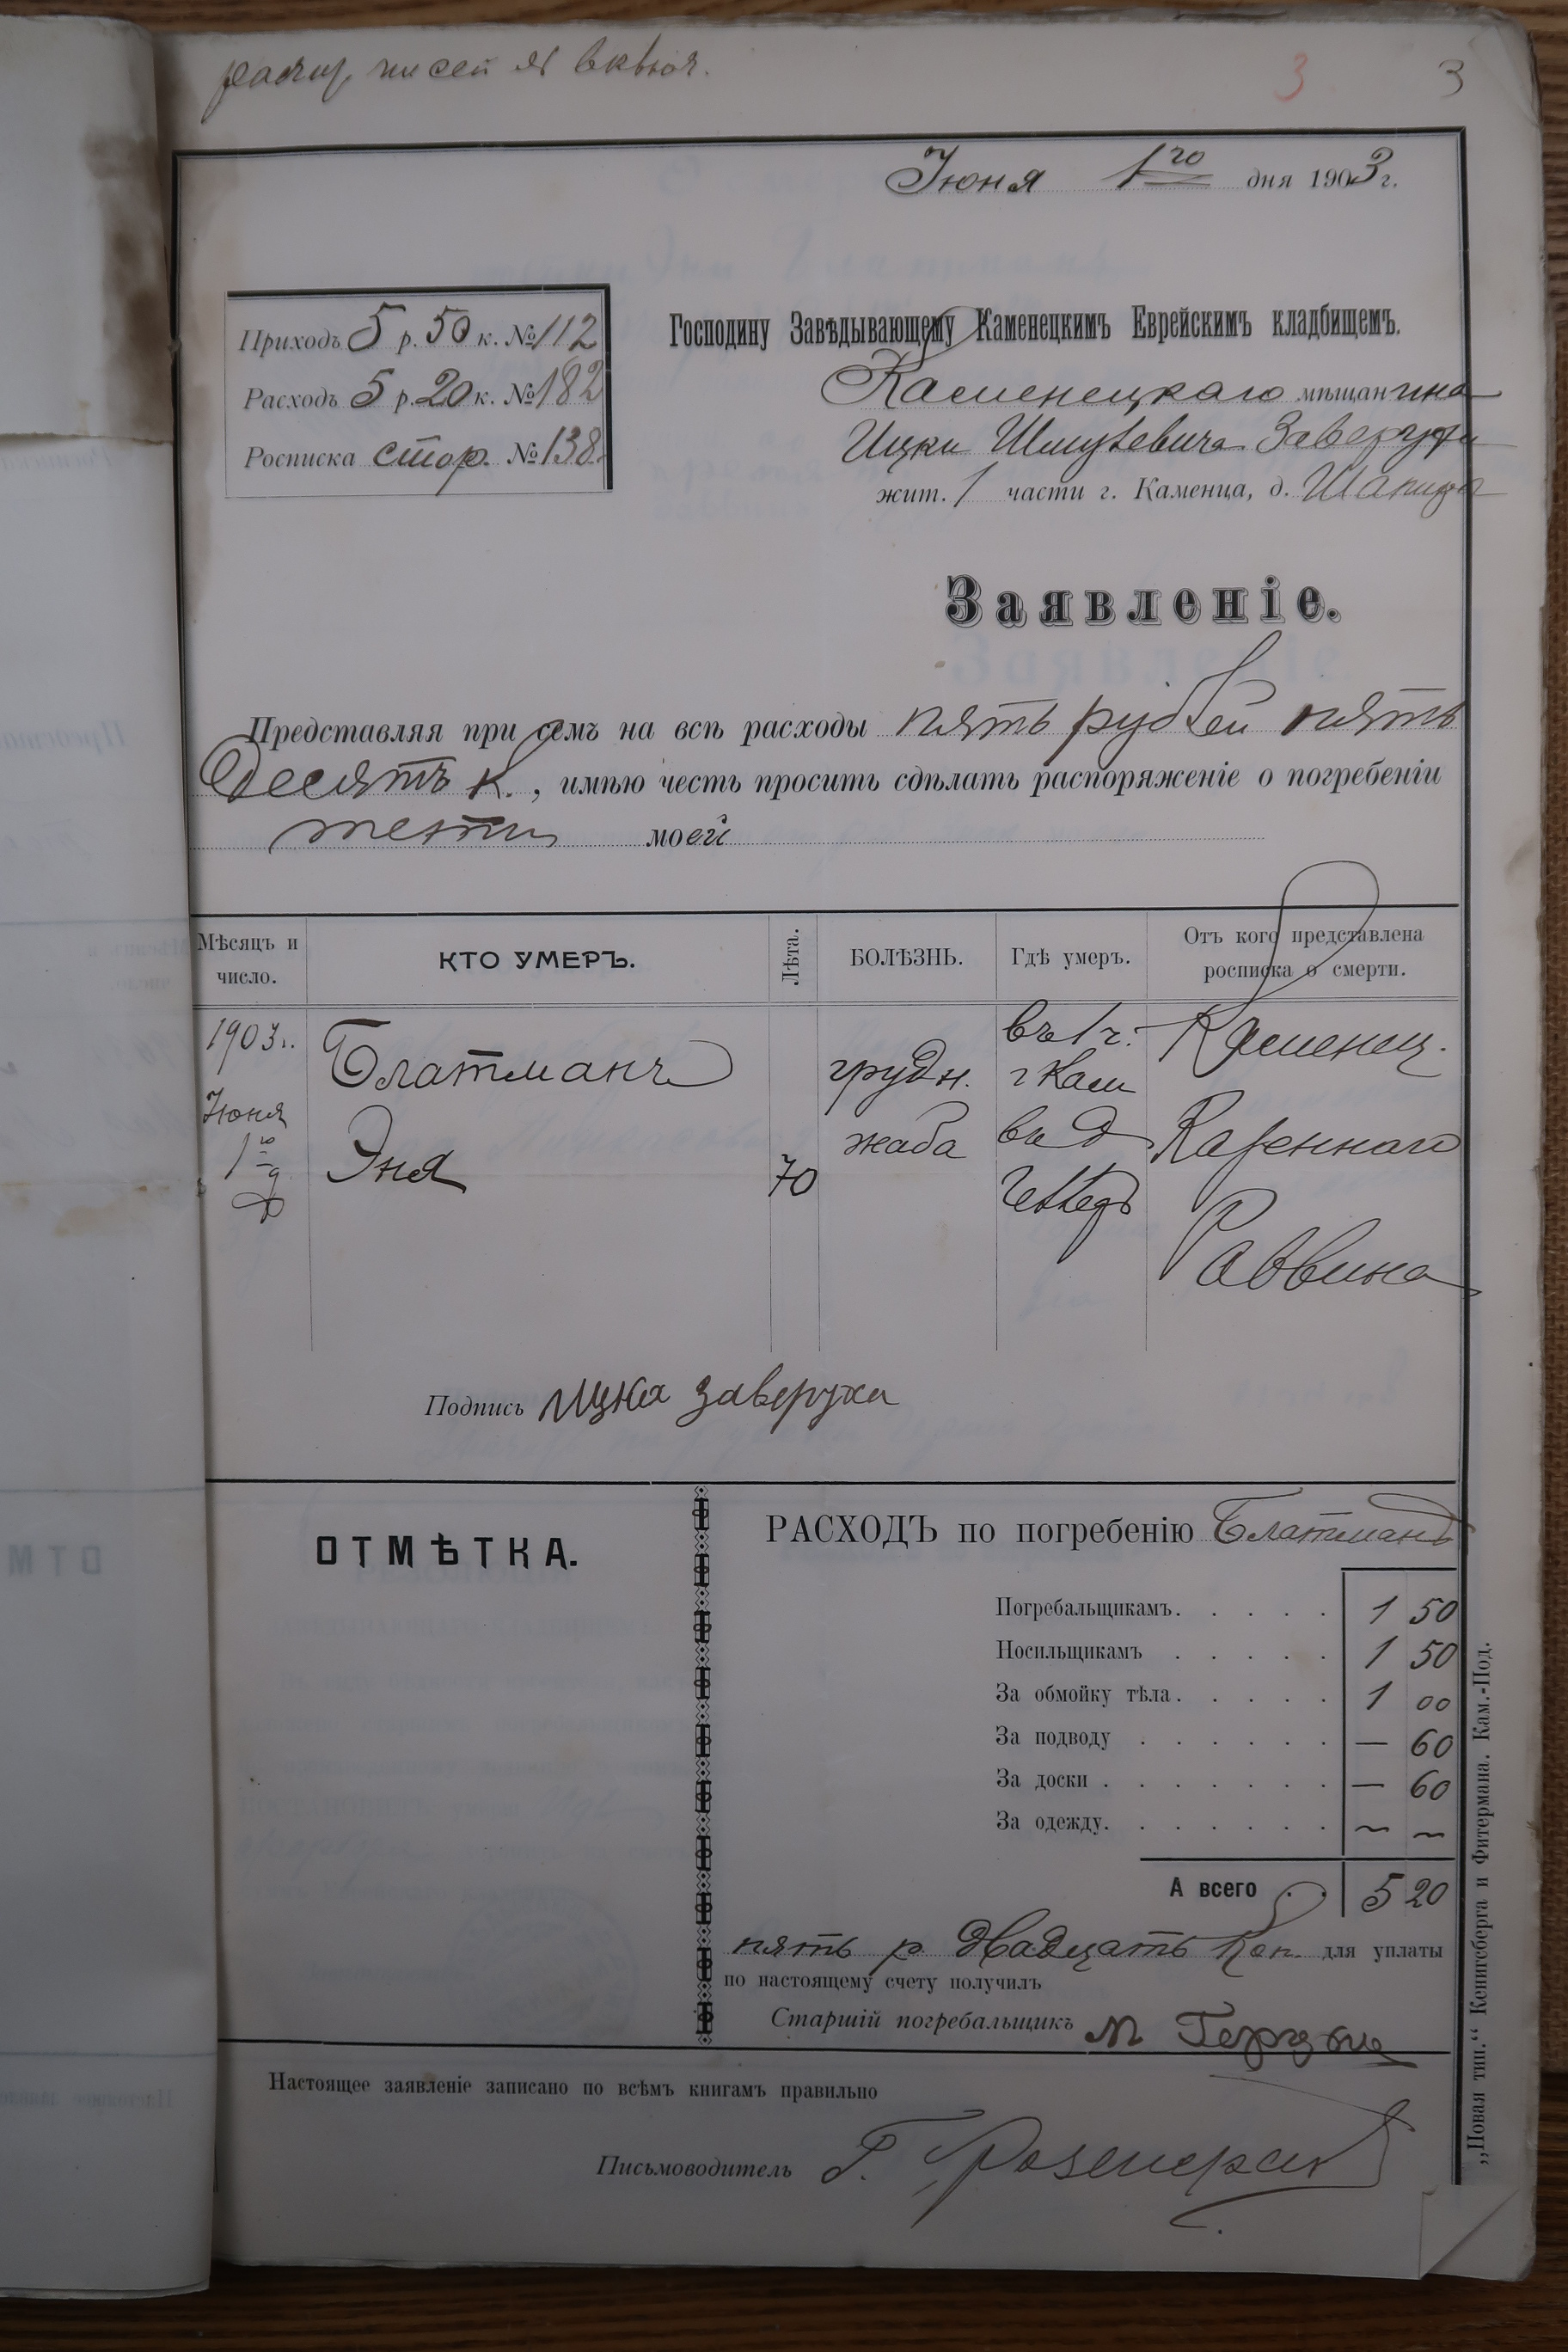 3 3
Июня 1го дня 1903 г.
Приходъ 5 р. 50 к. № 112
Расходъ 5 р. 20 к. № 182
Росписка стор. № 138.
Господину Завѣдывающему Каменецкимъ Еврейскимъ кладбищемъ.
Каменецкаго мѣщанина
Ицки Шмулевича Заверухи
жит. 1 части г. Каменца, д. Шапира
Заявленіе.
Представляя при семъ на всѣ расходы пять рублей пять
десятъ к., имѣю честь просить сдѣлать распоряженіе о погребеніи
тети моей
Мѣсяцъ и число. КТО УМЕРЪ. Лѣта. БОЛѢЗНЬ. Гдѣ умеръ. Отъ кого представлена росписка о смерти.
1903 г. Блатманъ грудн. въ 1 ч. Каменец.
Июня г Кам
1го д Эня 70 жаба въ д Казеннаго
Раввина
Подпись Ицка Заверуха
ОТМѢТКА.
РАСХОДЪ по погребенію Блатманъ
Погребальщикамъ. 1 50
Носильщикамъ 1 50
За обмойку тѣла. 1 00
За подводу — 60
За доски — 60
За одежду. ~ ~
А всего 5 20
пять р двадцать коп. для уплаты
по настоящему счету получилъ
Старшій погребальщикъ М
Настоящее заявленіе записано по всѣмъ книгамъ правильно
Письмоводитель Г.
„Новая тип.“ Кенигсберга и Фитермана. Кам.-Под.